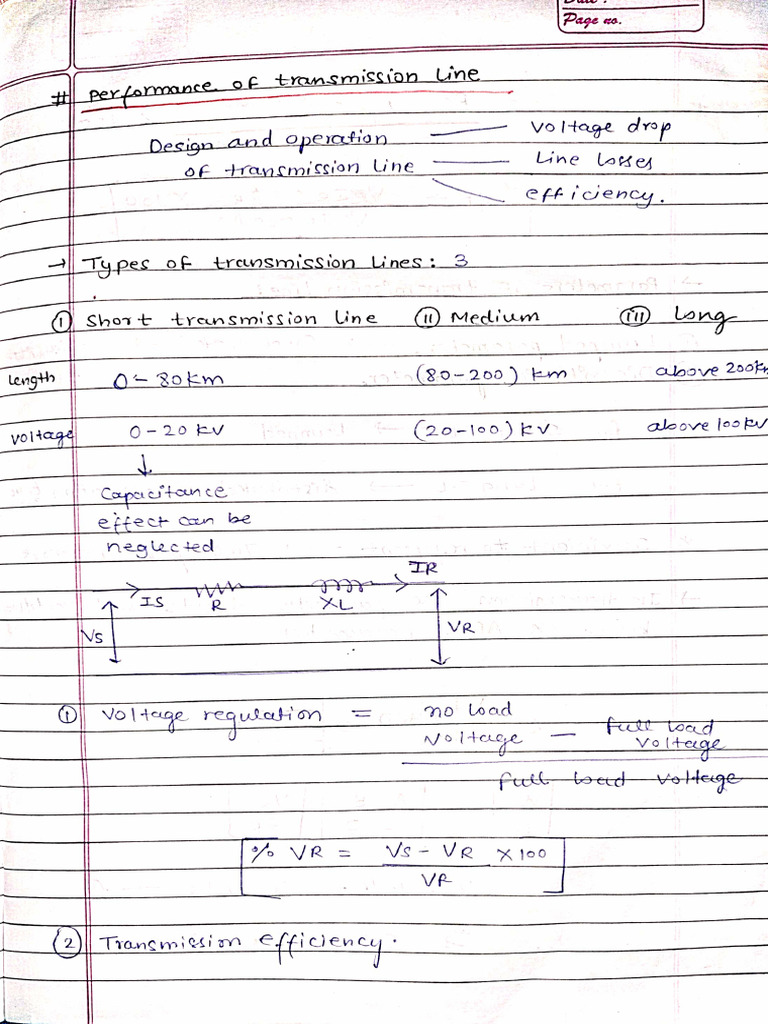 Date :
Page no.
# Performance of transmission Line
Design and operation — voltage drop
of transmission line — Line losses
efficiency.
→ Types of transmission Lines: 3
(i) Short transmission line (ii) Medium (iii) Long
length 0 - 80km (80-200) km above 200km
voltage 0-20 kv (20-100) kv above 100 kv
↓
Capacitance
effect can be
neglected
IR
IS R XL
VS VR
(1) voltage regulation = no load
voltage — full load voltage
full load voltage
% VR = VS - VR × 100
VR
(2) Transmission efficiency.